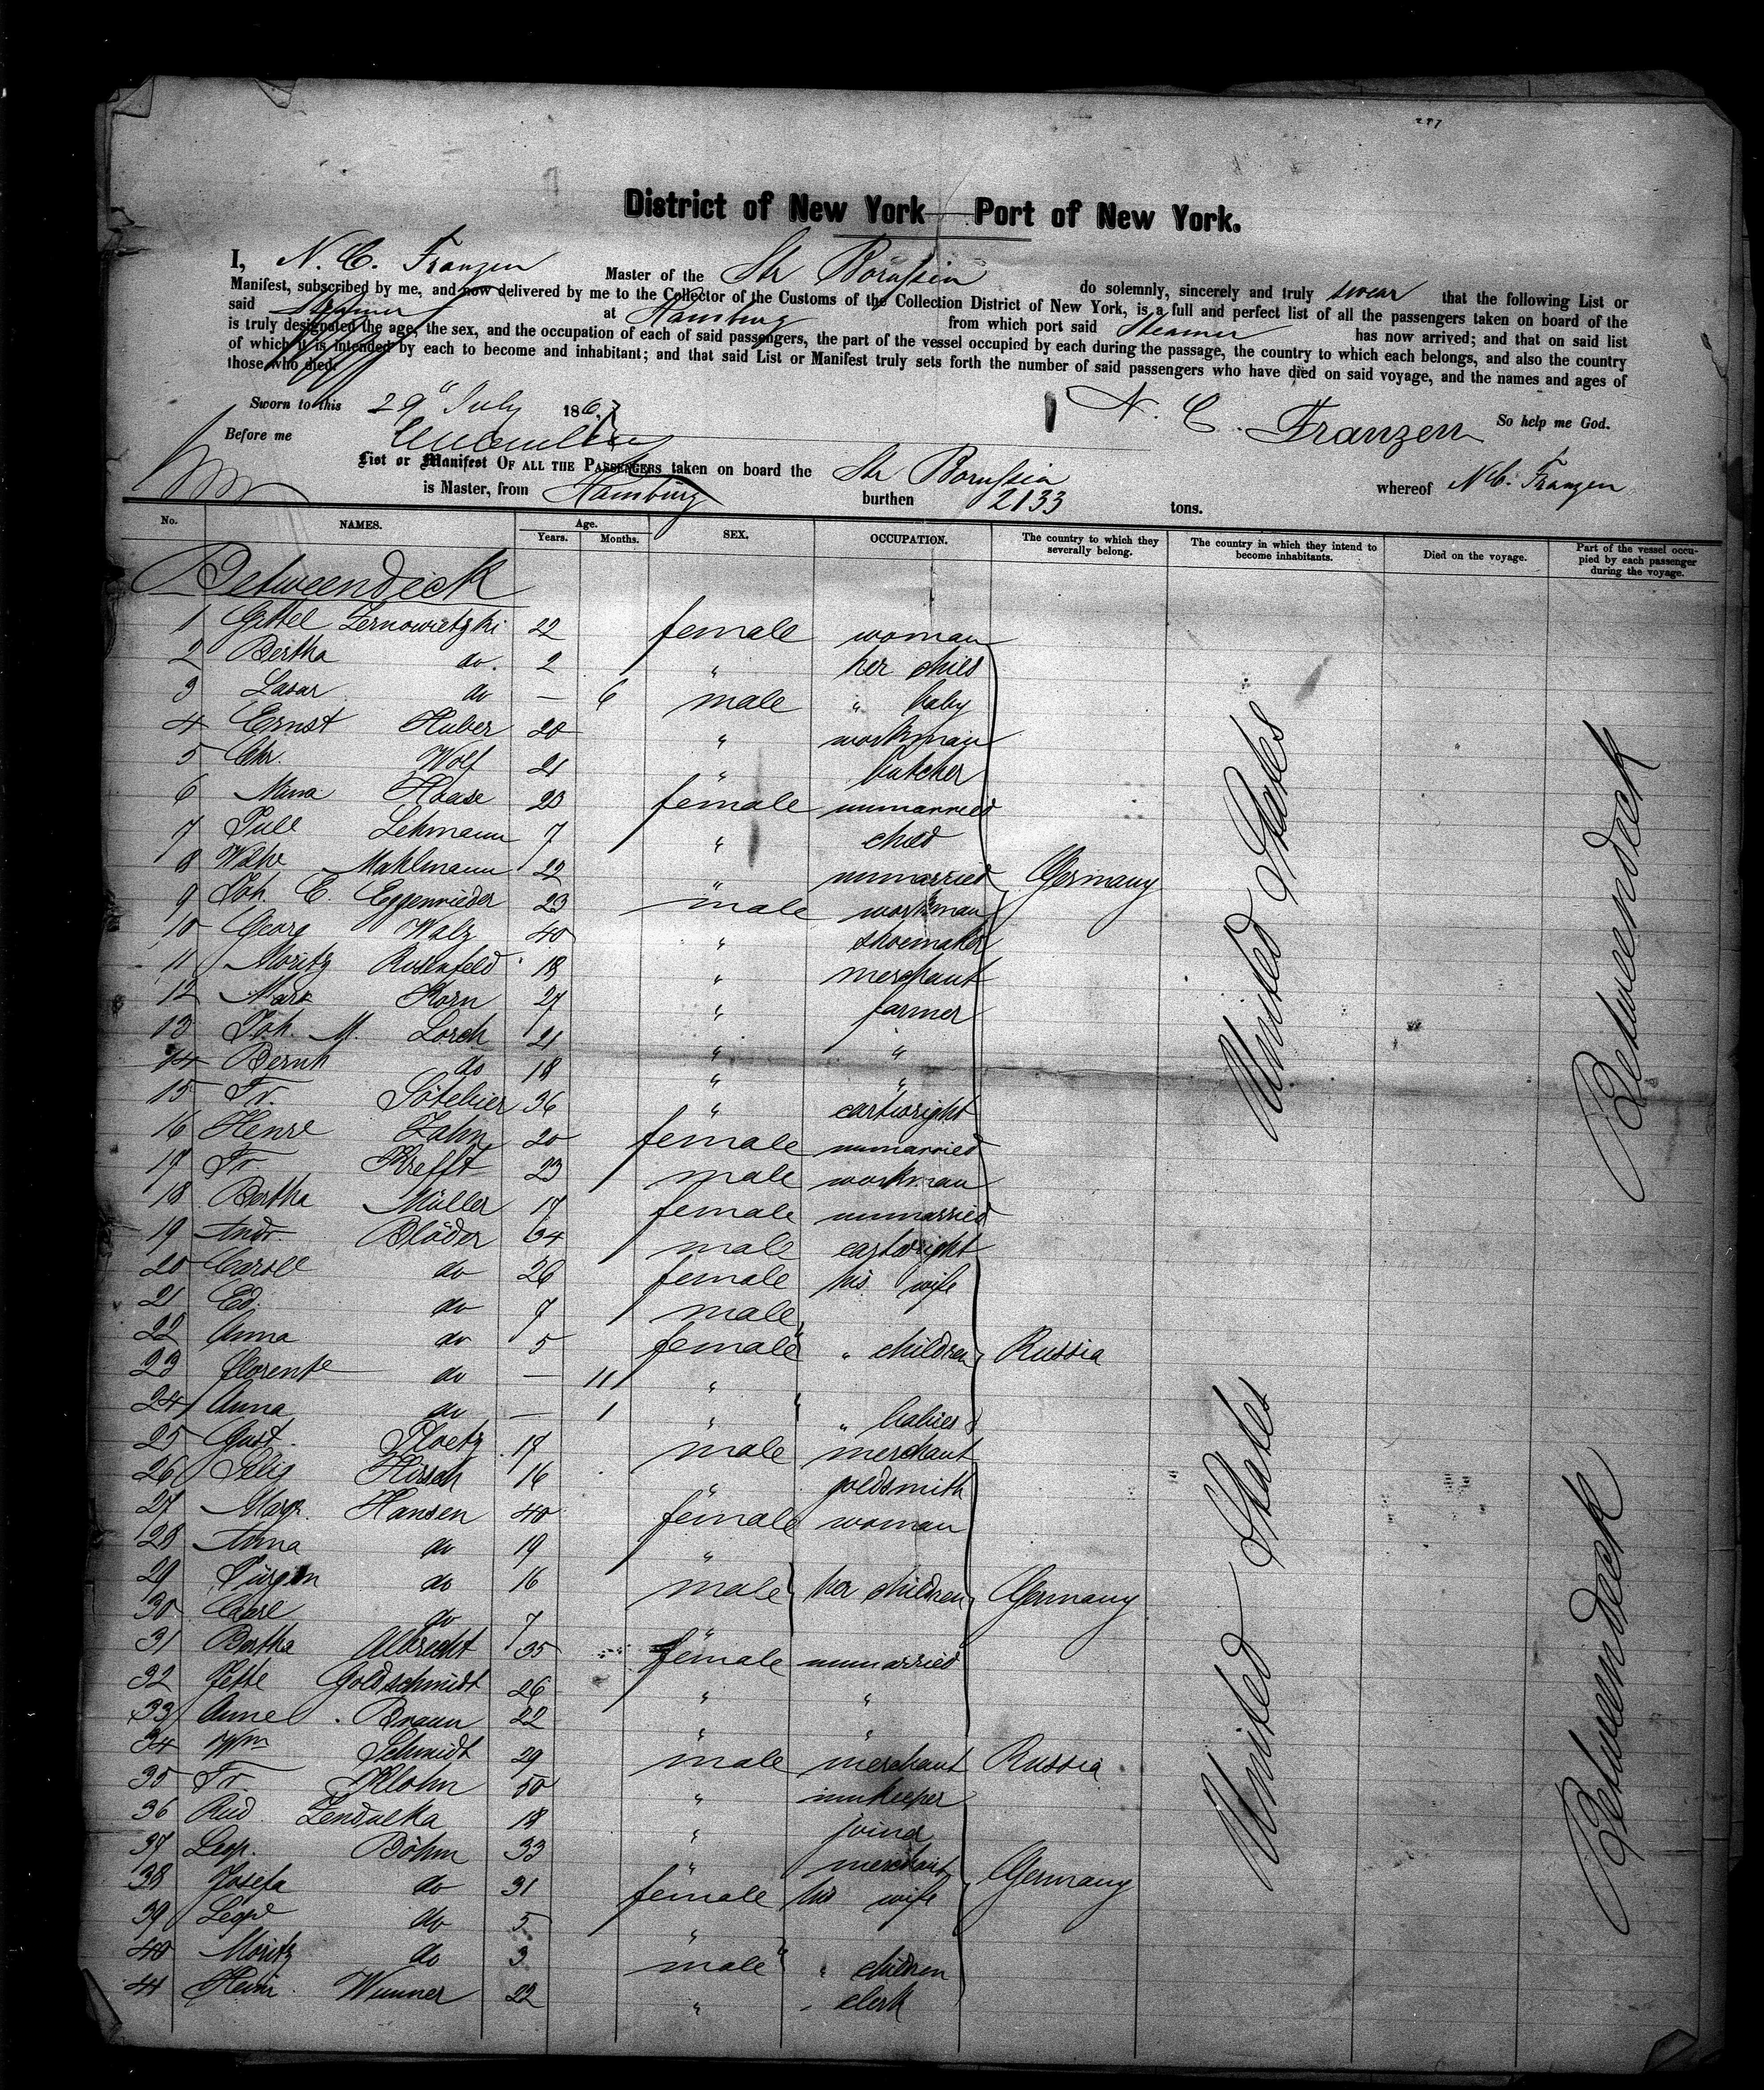 297
District of New York — Port of New York.
I, N. C. Franzen Master of the Str Borussia do solemnly, sincerely and truly swear that the following List or
Manifest, subscribed by me, and now delivered by me to the Collector of the Customs of the Collection District of New York, is a full and perfect list of all the passengers taken on board of the
said Steamer at Hamburg from which port said Steamer has now arrived; and that on said list
is truly designated the age, the sex, and the occupation of each of said passengers, the part of the vessel occupied by each during the passage, the country to which each belongs, and also the country
of which it is intended by each to become and inhabitant; and that said List or Manifest truly sets forth the number of said passengers who have died on said voyage, and the names and ages of
those who died.
Sworn to this 29" July 186 N. C. Franzen So help me God.
Before me
List or Manifest OF ALL THE PASSENGERS taken on board the Str Borussia whereof N.C. Franzen
is Master, from Hamburg burthen 2133 tons.
No. NAMES. Age. Years. Months. SEX. OCCUPATION. The country to which they severally belong. The country in which they intend to become inhabitants. Died on the voyage. Part of the vessel occupied by each passenger during the voyage.
Betweendeck
1 Gittel 22 female woman
2 Bertha do. 2 " her child
3 Lasar do — 6 male " baby
4 Ernst Huber 20 " workman
5 Chr. Wolf 21 " butcher
6 Mina Haase 23 female unmarried
7 Lehmann 7 " child
8 Wilhe Mahlmann 22 " unmarried Germany
9 Joh. E. 23 male workman
10 Georg Walz 40 " shoemaker
11 Moritz Rosenfeld 18 " merchant
12 Marx Korn 27 " farmer
13 Joh. M. Lorch 21 " "
14 Bernh do 18 " "
15 Fr. Sötebier 36 " cartwright
16 Henre Zahn 20 female unmarried
17 Fr. Krefft 23 male workman
18 Bertha Müller 17 female unmarried
19 Andr Blöder 34 male cartwright
20 Carole do 26 female his wife
21 Ed. do 7 male
22 Anna do 5 female " children Russia
23 do — 11 "
24 Anna do — 1 " " babies
25 Gust. Ploetz 17 male merchant
26 Selig Hirsch 16 " goldsmith
27 Marg. Hansen 40 female woman
28 Anna do 19 "
29 Jürgen do 16 male her children Germany
30 do 7 "
31 Bertha Albrecht 35 female unmarried
32 Jette Goldschmidt 26 " "
33 Anne Braun 22 " "
34 Wm Schmidt 29 male merchant Russia
35 Fr. Klohn 50 " innkeeper
36 Rud. 18 "
37 Leop. Böhm 33 " merchant
38 Josefa do 31 female his wife Germany
39 do 5 "
40 Moritz do 3 male " children
41 Heinr. Wunner 22 " - clerk
United States
Betweendeck
United States
Betweendeck